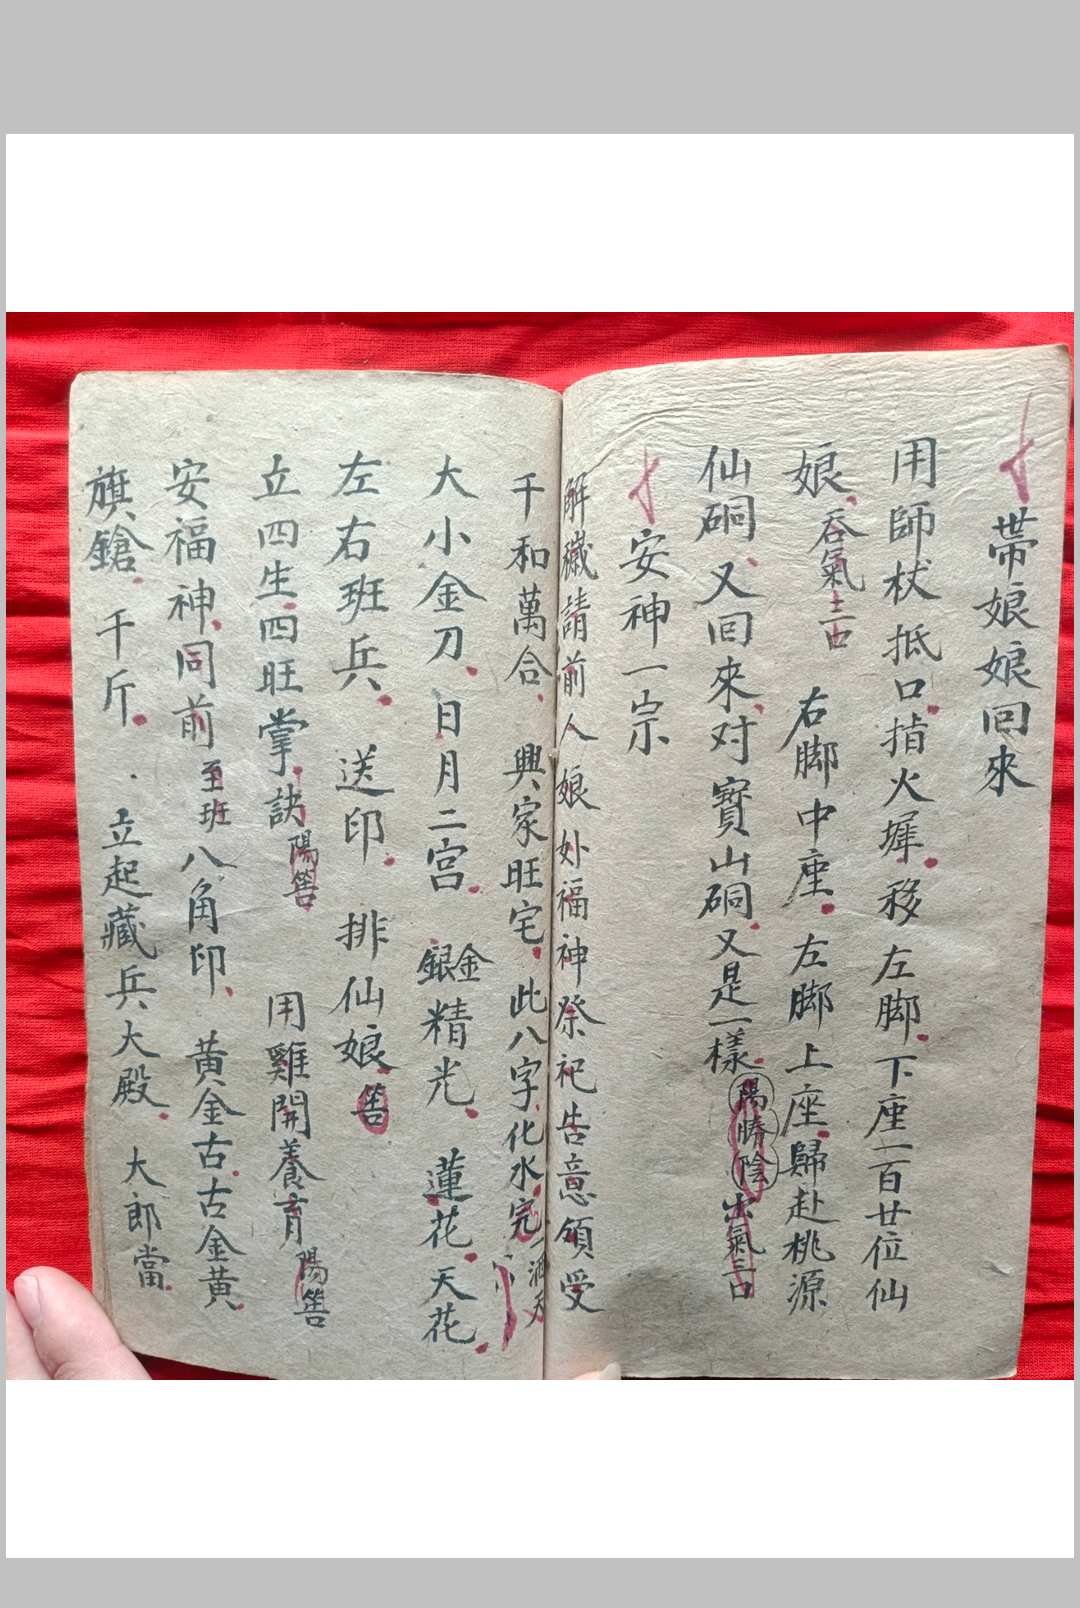 帶娘娘回來
用師杖抵口指火墀移左脚下座一百廿位仙
娘吞氣三口 右脚中座左脚上座歸赴桃源
仙硐又囘來对寳山硐又是一樣陽勝陰出氣三口
安神一宗
解穢請前人娘处福神祭祀告意領受
千和萬合 興家旺宅此八字化水完一洒天
大小金刀日月二宫金銀精光 蓮花天花
左右班兵 送印 排仙娘筶
立四生四旺掌訣陽筶 用雞開養育陽筶
安福神同前至班八角印 黄金古古金黄
旗鎗 千斤 立起藏兵大殿 大郎當